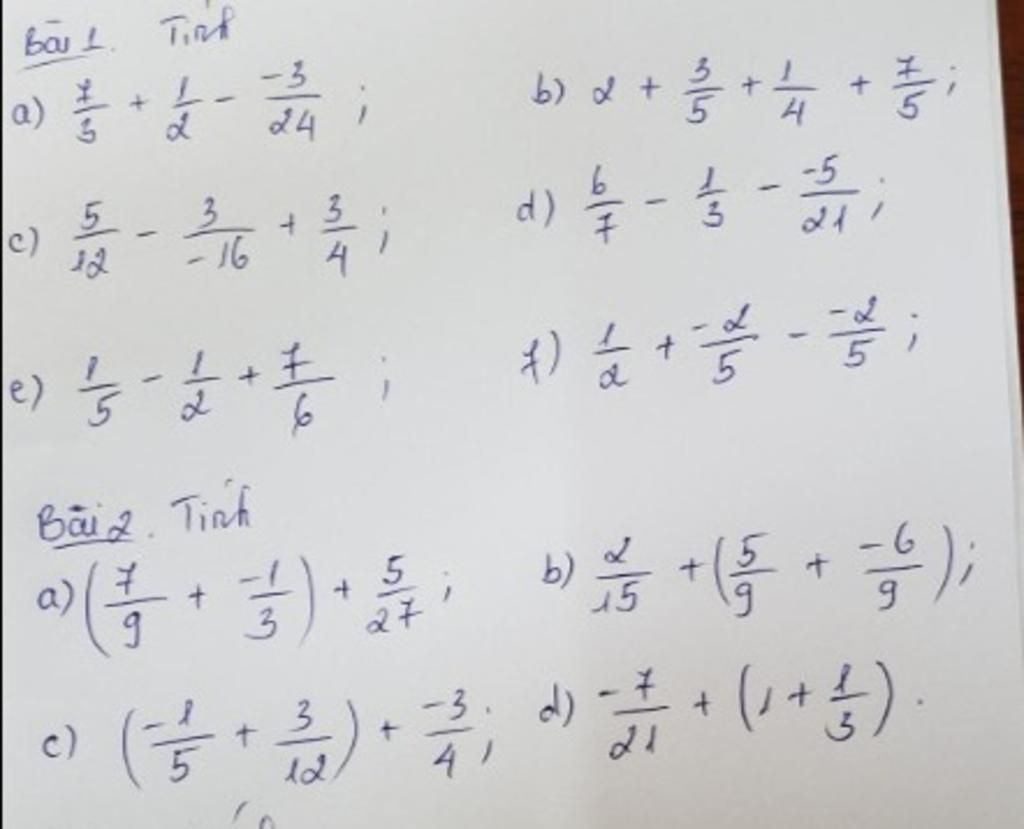 Bài 1. Tính
a) 7/3 + 1/2 - -3/24 ; b) 2 + 3/5 + 1/4 + 7/5 ;
c) 5/12 - 3/-16 + 3/4 ; d) 6/7 - 1/3 - -5/21 ;
e) 1/5 - 1/2 + 7/6 ; f) 1/2 + -2/5 - -2/5 ;
Bài 2. Tính
a) (7/9 + -1/3) + 5/27 ; b) 2/15 + (5/9 + -6/9) ;
c) (-1/5 + 3/12) + -3/4 ; d) -7/21 + (1 + 1/3) .